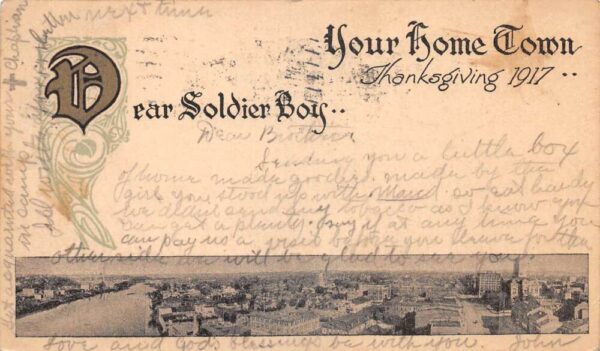 Your Home Town
Thanksgiving 1917 ..
Dear Soldier Boy ..
Dear Brother
Sending you a little box
of home made goodies made by the
girl you stood up with so eat hardy
we didn't send any as I know you
can get a plenty. at any time you
can pay us a visit before you leave for the
other side we will be glad to see you.
Love and God's blessings be with you. John
Get acquainted with your Chaplain
in camp
I'll write you a better
next time